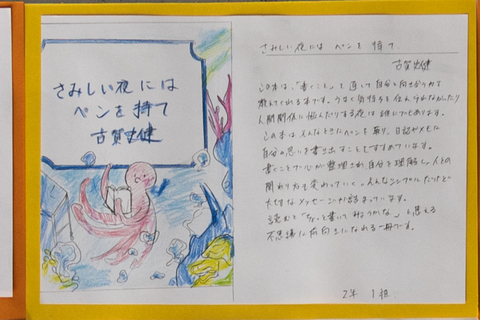 さみしい夜には
ペンを持て
古賀史健
さみしい夜には ペンを 持て
古賀史健
この本は、「書くこと」を 通して自分と向き合う力を
教えてくれる本です。うまく気持ちを伝えられなかったり
人間関係に悩んだりする夜は 誰にでもあります。
この本は そんなときにペンを 取り、日記やメモに
自分の思いを書き出すことをすすめています。
書くことで心が整理され自分を理解し、人との
関わり方も変わっていく。そんなシンプルだけど
大切なメッセージが詰まっています。
読むと「ちょっと書いてみようかな」と思える
不思議に前向きになれる一冊です。
2年 1組